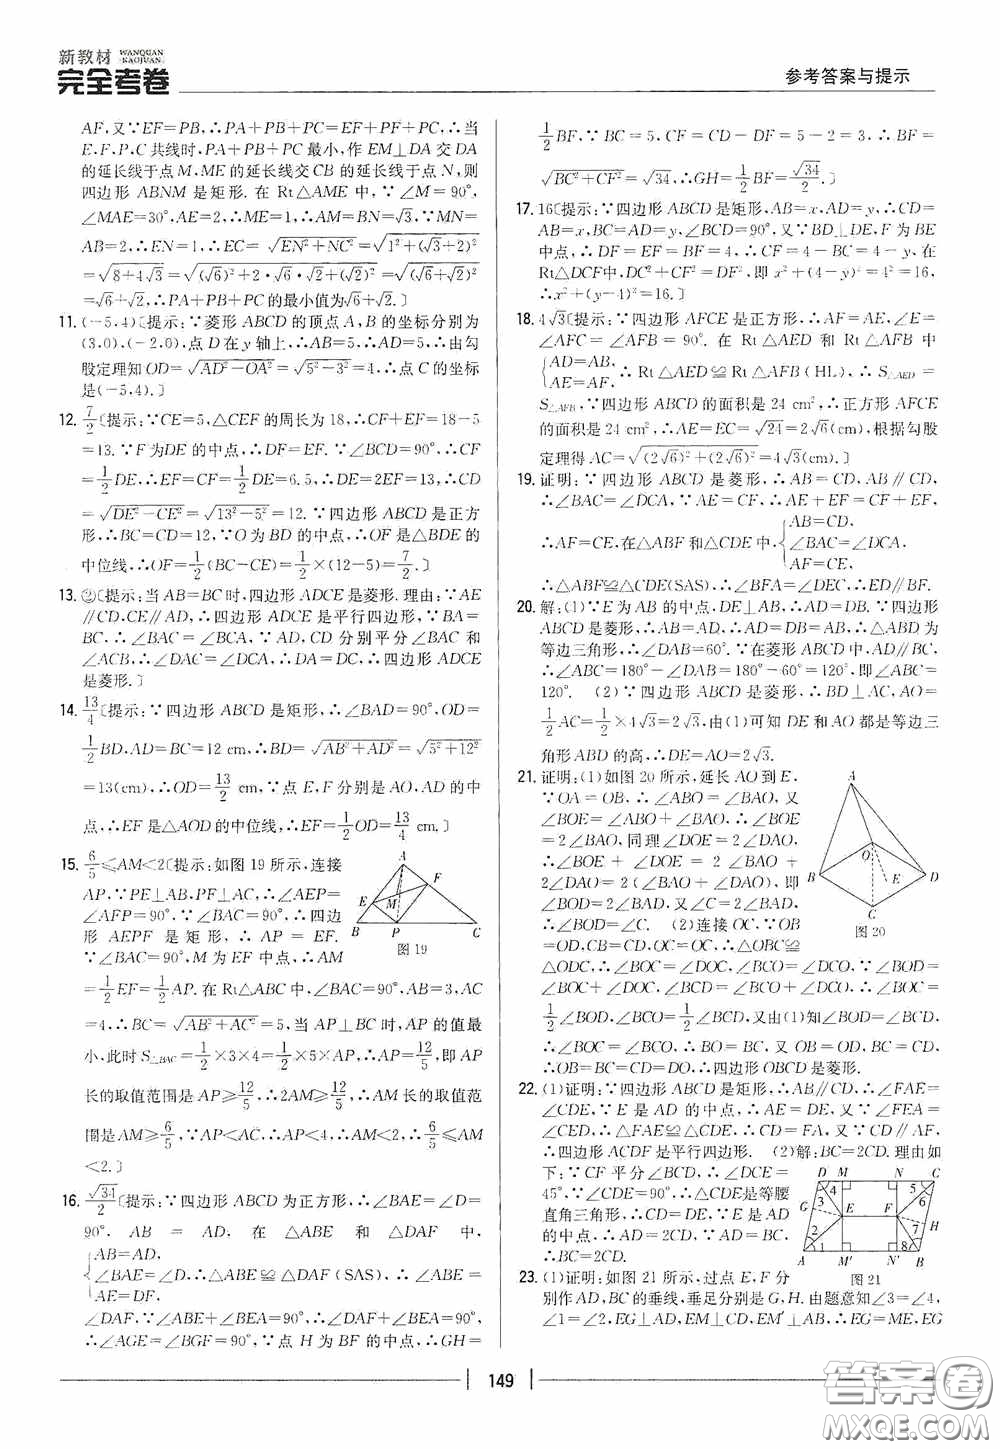 新教材 WANQUAN KAOJUAN
完全考卷
参考答案与提示
AF,又∵EF=PB,∴PA+PB+PC=EF+PF+PC,∴当
E,F,P,C共线时,PA+PB+PC最小,作EM⊥DA交DA
的延长线于点M,ME的延长线交CB的延长线于点N,则
四边形ABNM是矩形.在Rt△AME中,∵∠M=90°,
∠MAE=30°,AE=2,∴ME=1,∴AM=BN=√3,∵MN=
AB=2,∴EN=1,∴EC=√(EN²+NC²)=√(1²+(√3+2)²)
=√(8+4√3)=√((√6)²+2·√6·√2+(√2)²)=√((√6+√2)²)
=√6+√2,∴PA+PB+PC的最小值为√6+√2.〕
11.(-5,4)〔提示:∵菱形ABCD的顶点A,B的坐标分别为
(3,0),(-2,0),点D在y轴上,∴AB=5,∴AD=5,∴由勾
股定理知OD=√(AD²-OA²)=√(5²-3²)=4,∴点C的坐标
是(-5,4).〕
12.7/2〔提示:∵CE=5,△CEF的周长为18,∴CF+EF=18-5
=13.∵F为DE的中点,∴DF=EF.∵∠BCD=90°,∴CF
=1/2DE,∴EF=CF=1/2DE=6.5,∴DE=2EF=13,∴CD
=√(DE²-CE²)=√(13²-5²)=12.∵四边形ABCD是正方
形,∴BC=CD=12,∵O为BD的中点,∴OF是△BDE的
中位线,∴OF=1/2(BC-CE)=1/2×(12-5)=7/2.〕
13.②〔提示:当AB=BC时,四边形ADCE是菱形.理由:∵AE
∥CD,CE∥AD,∴四边形ADCE是平行四边形,∵BA=
BC,∴∠BAC=∠BCA,∵AD,CD分别平分∠BAC和
∠ACB,∴∠DAC=∠DCA,∴DA=DC,∴四边形ADCE
是菱形.〕
14.13/4〔提示:∵四边形ABCD是矩形,∴∠BAD=90°,OD=
1/2BD,AD=BC=12 cm,∴BD=√(AB²+AD²)=√(5²+12²)
=13(cm),∴OD=13/2 cm,∵点E,F分别是AO,AD的中
点,∴EF是△AOD的中位线,∴EF=1/2OD=13/4 cm.〕
15.6/5≤AM<2〔提示:如图19所示,连接
AP,∵PE⊥AB,PF⊥AC,∴∠AEP=
∠AFP=90°,∵∠BAC=90°,∴四边
形AEPF是矩形,∴AP=EF.
∵∠BAC=90°,M为EF中点,∴AM
=1/2EF=1/2AP.在Rt△ABC中,∠BAC=90°,AB=3,AC
=4,∴BC=√(AB²+AC²)=5,当AP⊥BC时,AP的值最
小,此时S△BAC=1/2×3×4=1/2×5×AP,∴AP=12/5,即AP
长的取值范围是AP≥12/5,∴2AM≥12/5,∴AM长的取值范
围是AM≥6/5,∵AP<AC,∴AP<4,∴AM<2,∴6/5≤AM
<2.〕
A
E
M
F
B
P
C
图19
16.√34/2〔提示:∵四边形ABCD为正方形,∴∠BAE=∠D=
90°,AB=AD,在△ABE和△DAF中,
{AB=AD,
∠BAE=∠D,∴△ABE≌△DAF(SAS),∴∠ABE=
AE=DF,
∠DAF.∵∠ABE+∠BEA=90°,∴∠DAF+∠BEA=90°,
∴∠AGE=∠BGF=90°,∵点H为BF的中点,∴GH=
1/2BF,∵BC=5,CF=CD-DF=5-2=3,∴BF=
√(BC²+CF²)=√34,∴GH=1/2BF=√34/2.〕
17.16〔提示:∵四边形ABCD是矩形,AB=x,AD=y,∴CD=
AB=x,BC=AD=y,∠BCD=90°,又∵BD⊥DE,F为BE
中点,∴DF=EF=BF=4,∴CF=4-BC=4-y.在
Rt△DCF中,DC²+CF²=DF²,即x²+(4-y)²=4²=16,
∴x²+(y-4)²=16.〕
18.4√3〔提示:∵四边形AFCE是正方形,∴AF=AE,∠E=
∠AFC=∠AFB=90°.在Rt△AED和Rt△AFB中
{AD=AB,
AE=AF,∴Rt△AED≌Rt△AFB(HL),∴S△AED=
S△AFB,∵四边形ABCD的面积是24 cm²,∴正方形AFCE
的面积是24 cm²,∴AE=EC=√24=2√6(cm),根据勾股
定理得AC=√((2√6)²+(2√6)²)=4√3(cm).〕
19.证明:∵四边形ABCD是菱形,∴AB=CD,AB∥CD,
∴∠BAC=∠DCA,∵AE=CF,∴AE+EF=CF+EF,
∴AF=CE,在△ABF和△CDE中,{AB=CD,
∠BAC=∠DCA,
AF=CE,
∴△ABF≌△CDE(SAS),∴∠BFA=∠DEC,∴DE∥BF.
20.解:(1)∵E为AB的中点,DE⊥AB,∴AD=DB.∵四边形
ABCD是菱形,∴AB=AD,∴AD=DB=AB,∴△ABD为
等边三角形,∴∠DAB=60°.∵在菱形ABCD中,AD∥BC,
∴∠ABC=180°-∠DAB=180°-60°=120°,即∠ABC=
120°. (2)∵四边形ABCD是菱形,∴BD⊥AC,AO=
1/2AC=1/2×4√3=2√3,由(1)可知DE和AO都是等边三
角形ABD的高,∴DE=AO=2√3.
21.证明:(1)如图20所示,延长AO到E,
∵OA=OB,∴∠ABO=∠BAO,又
∠BOE=∠ABO+∠BAO,∴∠BOE
=2∠BAO,同理∠DOE=2∠DAO,
∴∠BOE+∠DOE=2∠BAO+
2∠DAO=2(∠BAO+∠DAO),即
∠BOD=2∠BAD,又∠C=2∠BAD,
∴∠BOD=∠C. (2)连接OC,∵OB
=OD,CB=CD,OC=OC,∴△OBC≌
△ODC,∴∠BOC=∠DOC,∠BCO=∠DCO,∵∠BOD=
∠BOC+∠DOC,∠BCD=∠BCO+∠DCO,∴∠BOC=
1/2∠BOD,∠BCO=1/2∠BCD,又由(1)知∠BOD=∠BCD,
∴∠BOC=∠BCO,∴BO=BC,又OB=OD,BC=CD,
∴OB=BC=CD=DO,∴四边形OBCD是菱形.
A
O
B
E
D
C
图20
22.(1)证明:∵四边形ABCD是矩形,∴AB∥CD,∴∠FAE=
∠CDE,∵E是AD的中点,∴AE=DE,又∵∠FEA=
∠CED,∴△FAE≌△CDE,∴CD=FA,又∵CD∥AF,
∴四边形ACDF是平行四边形. (2)解:BC=2CD.理由如
下:∵CF平分∠BCD,∴∠DCE=
45°,∵∠CDE=90°,∴△CDE是等腰
直角三角形,∴CD=DE,∵E是AD
的中点,∴AD=2CD,∵AD=BC,
∴BC=2CD.
D M N C
4 5
3 6
G E F H
2 7
1 8
A M′ N′ B
图21
23.(1)证明:如图21所示,过点E,F分
别作AD,BC的垂线,垂足分别是G,H.由题意知∠3=∠4,
∠1=∠2,EG⊥AD,EM⊥CD,EM′⊥AB,∴EG=ME,EG
149
答案卷
MXQE.COM